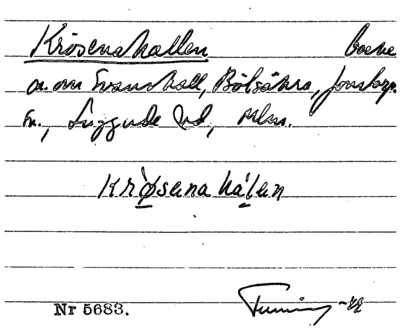 Krösenahallen backe
ö. om Svanshall, Bölsåkra, Jonstorp
sn., Luggude hd, Mlm.
Krøsena hálen
Nr 5683.
-22